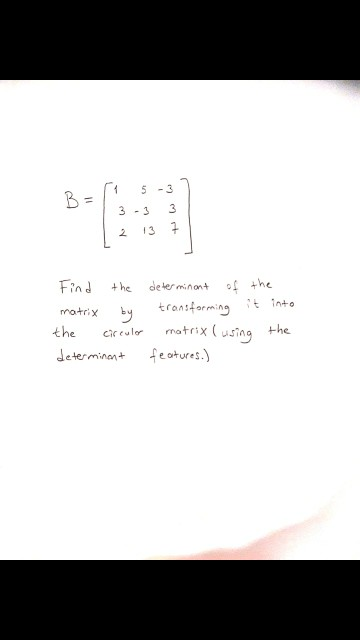 B = [ 1 5 -3
3 -3 3
2 13 7 ]
Find the determinant of the
matrix by transforming it into
the circular matrix (using the
determinant features.)